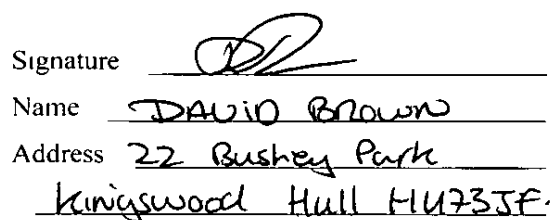 Signature
Name DAVID BROWN
Address 22 Bushey Park
Kingswood Hull HU73JF.